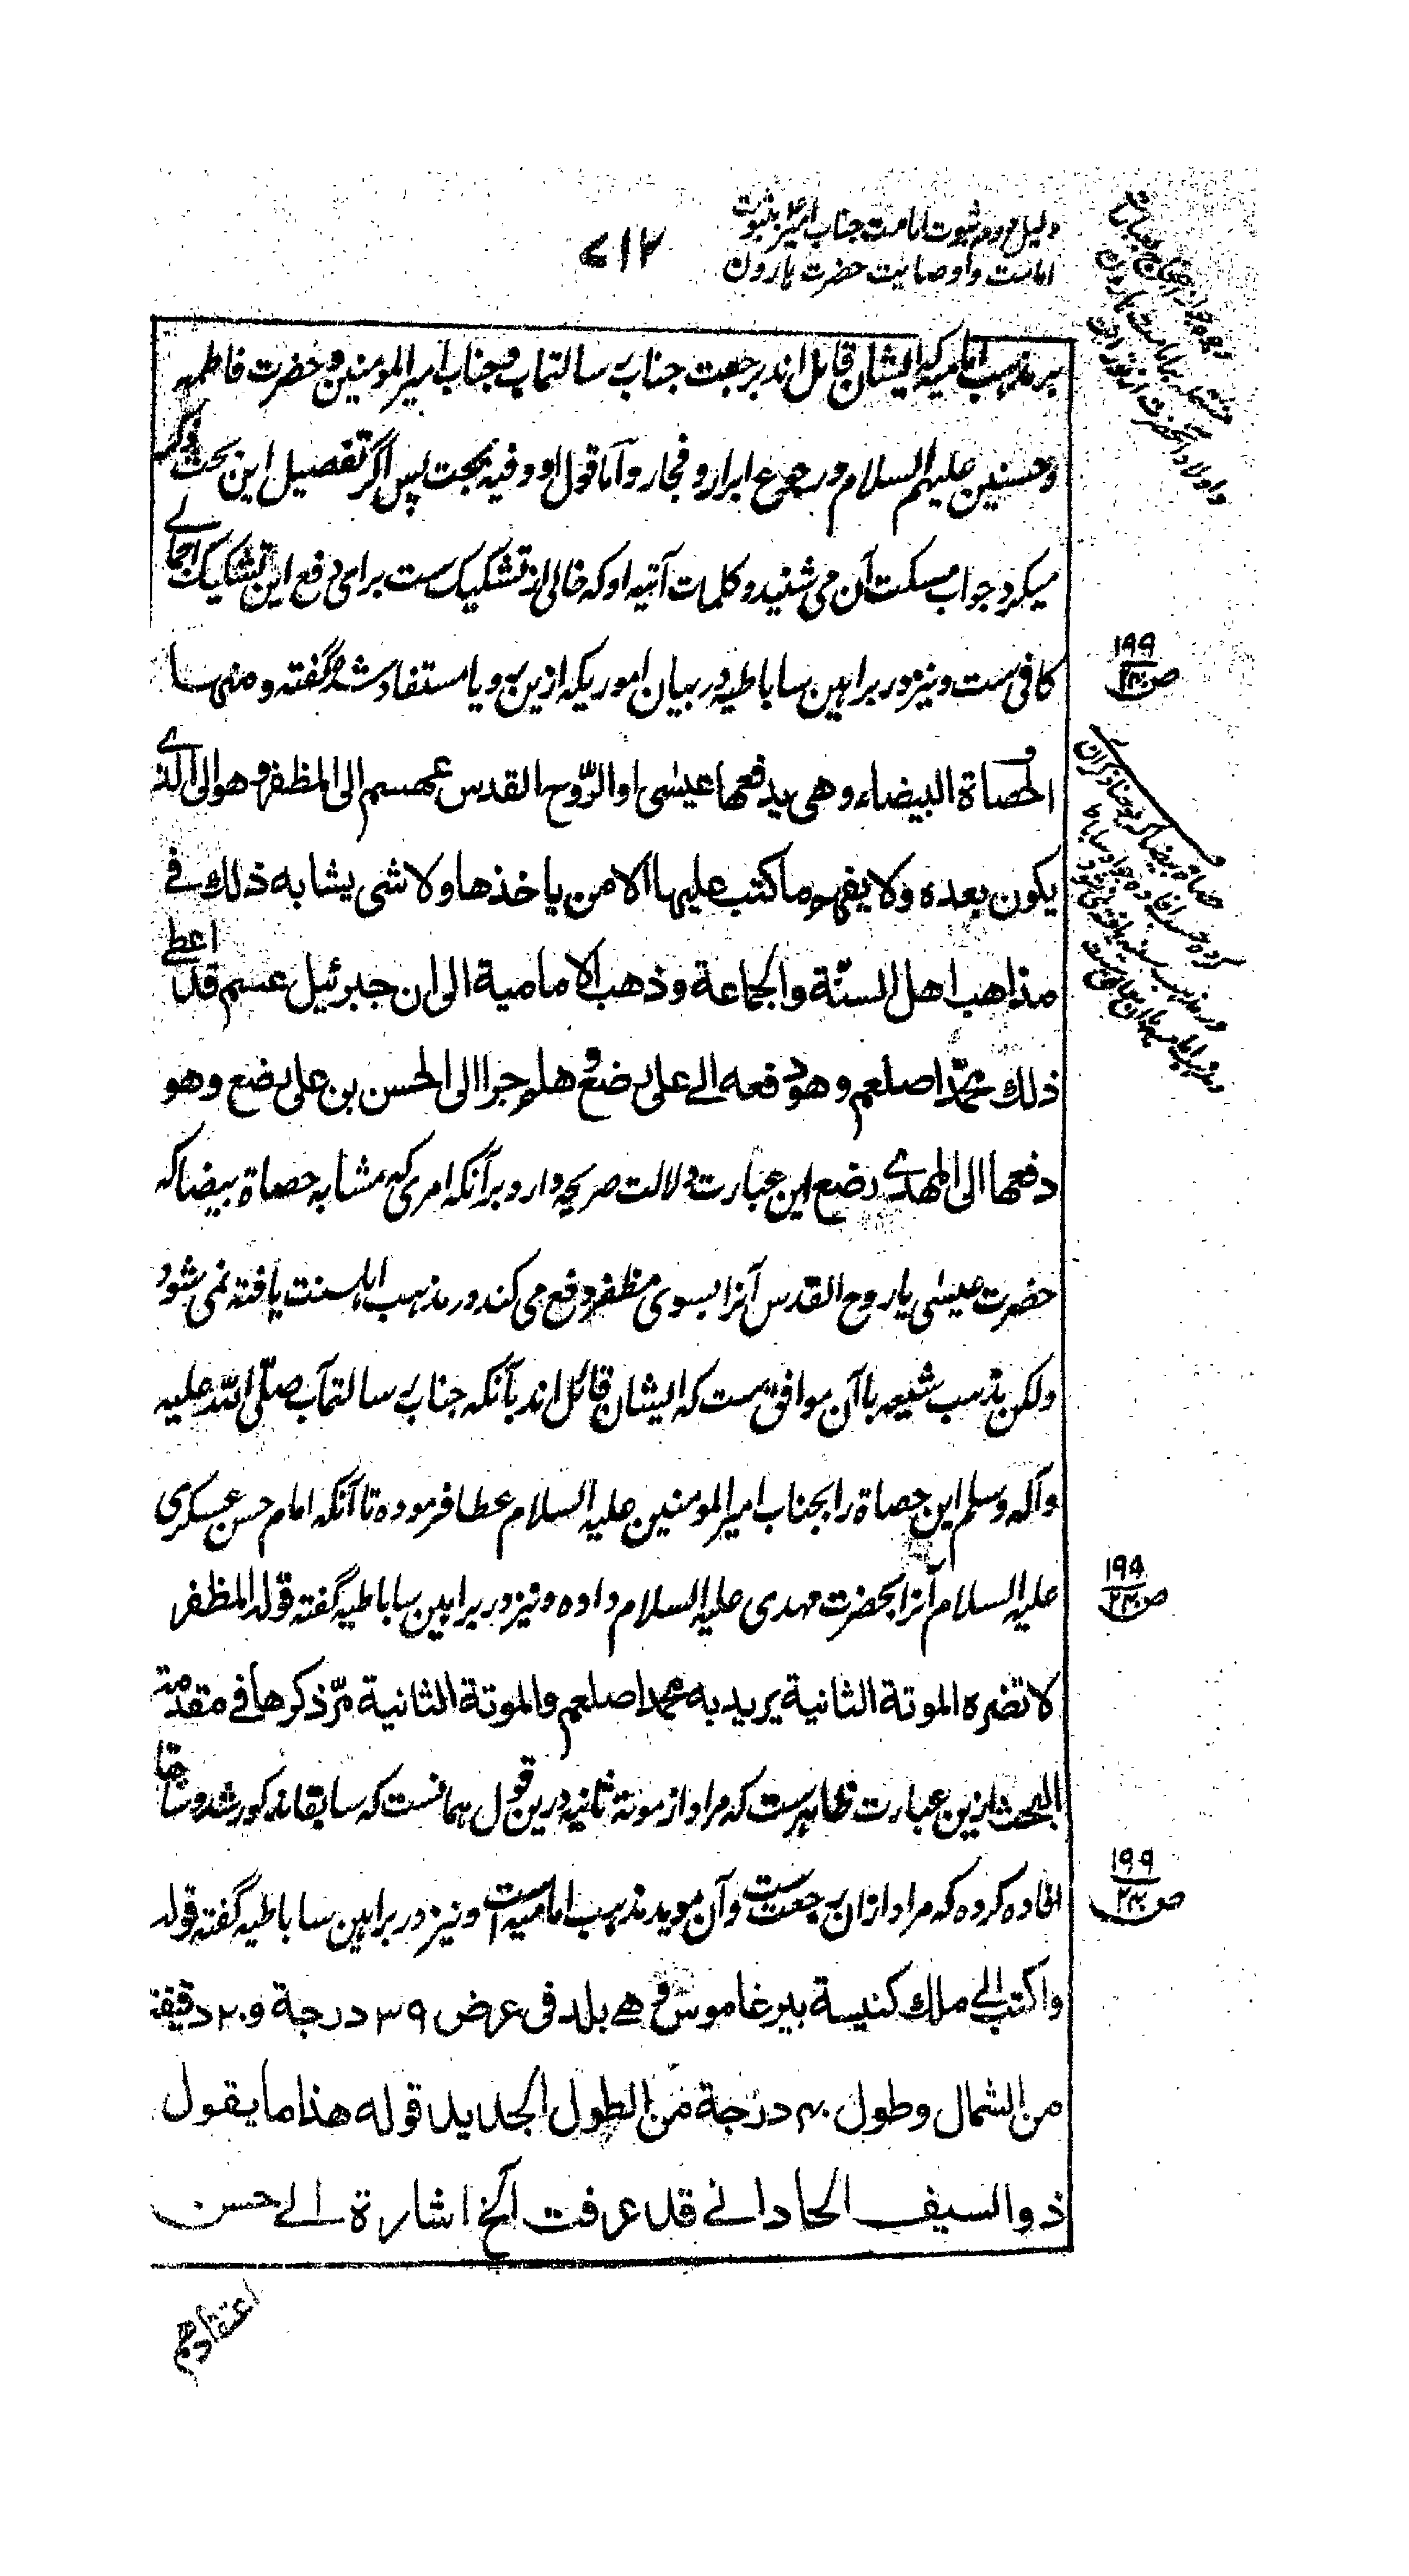 دلیل دوم ثبوت امامت جناب امیرؑ بثبوت
امامت و اوصایت حضرت هارون
۷۱۲
بر مذهب امامیه که ایشان قائل اند برجعت جناب رسالتمآب و جناب امیرالمومنین و حضرت فاطمه
و حسنین علیهم السلام و رجوع ابرار و فجار و اما قول او و فیه بحث پس اگر تفصیل این بحث ذکر
میکرد جواب مسکت آن می شنید و کلمات آتیه او که خالی از تشکیک ست برای دفع این تشکیک اجمالے
کافی ست و نیز در براهین ساباطیه در بیان اموریکه ازین رویا مستفاد شده گفته و منها
الحصاة البیضاء وهی یدفعها عیسی او الروح القدس عمسم الی المظفر وهو الی الذے
یکون بعده ولا یفهم ما کتب علیها الا من یاخذها ولا شی یشابه ذلك فے
مذاهب اهل السنّة والجماعة وذهب الامامیة الی ان جبرئیل عسم قد اعطے
ذلك محمّدا صلعم وهو دفعه الے علی رضع و هلم جرا الی الحسن بن علی رضع وهو
دفعها الی المهدے رضع این عبارت دلالت صریحه دارد بر آنکه امری که مشابه حصاة بیضا که
حضرت عیسی یا روح القدس آنرا بسوی مظفر دفع می کند در مذهب اهلسنت یافته نمی شود
ولکن مذهب شیعه با آن موافق ست که ایشان قائل اند بآنکه جناب رسالتمآب صلّی الله علیه
و آله وسلم این حصاة را بجناب امیرالمومنین علیه السلام عطا فرموده تا آنکه امام حسن عسکری
علیه السلام آنرا بحضرت مهدی علیه السلام داده و نیز در براهین ساباطیه گفته قوله المظفر
لا تضره الموتة الثانیة یرید به محمدا صلعم والموتة الثانیة مرّ ذکرها فے مقدمة
البحث ازین عبارت ظاهرست که مراد از موته ثانیه درین قول همانست که سابقا مذکور شد و سابقا
افاده کرده که مراد ازان رجعت ست و آن موید مذهب امامیه است و نیز در براهین ساباطیه گفته قوله
واکتب الی ملك کنیسة بیرغاموس و هے بلد فی عرض ۳۹ درجة و ۲۰ دقیقة
من الشمال وطول ۴۰ درجة من الطول الجدید قوله هذا ما یقول
ذوالسیف الحاد انے قد عرفت الخ اشارة الے حسن
اعتقادهم
۱۹۹
ص ۲۳
۱۹۹
ص ۲۳
۱۹۹
ص ۲۳